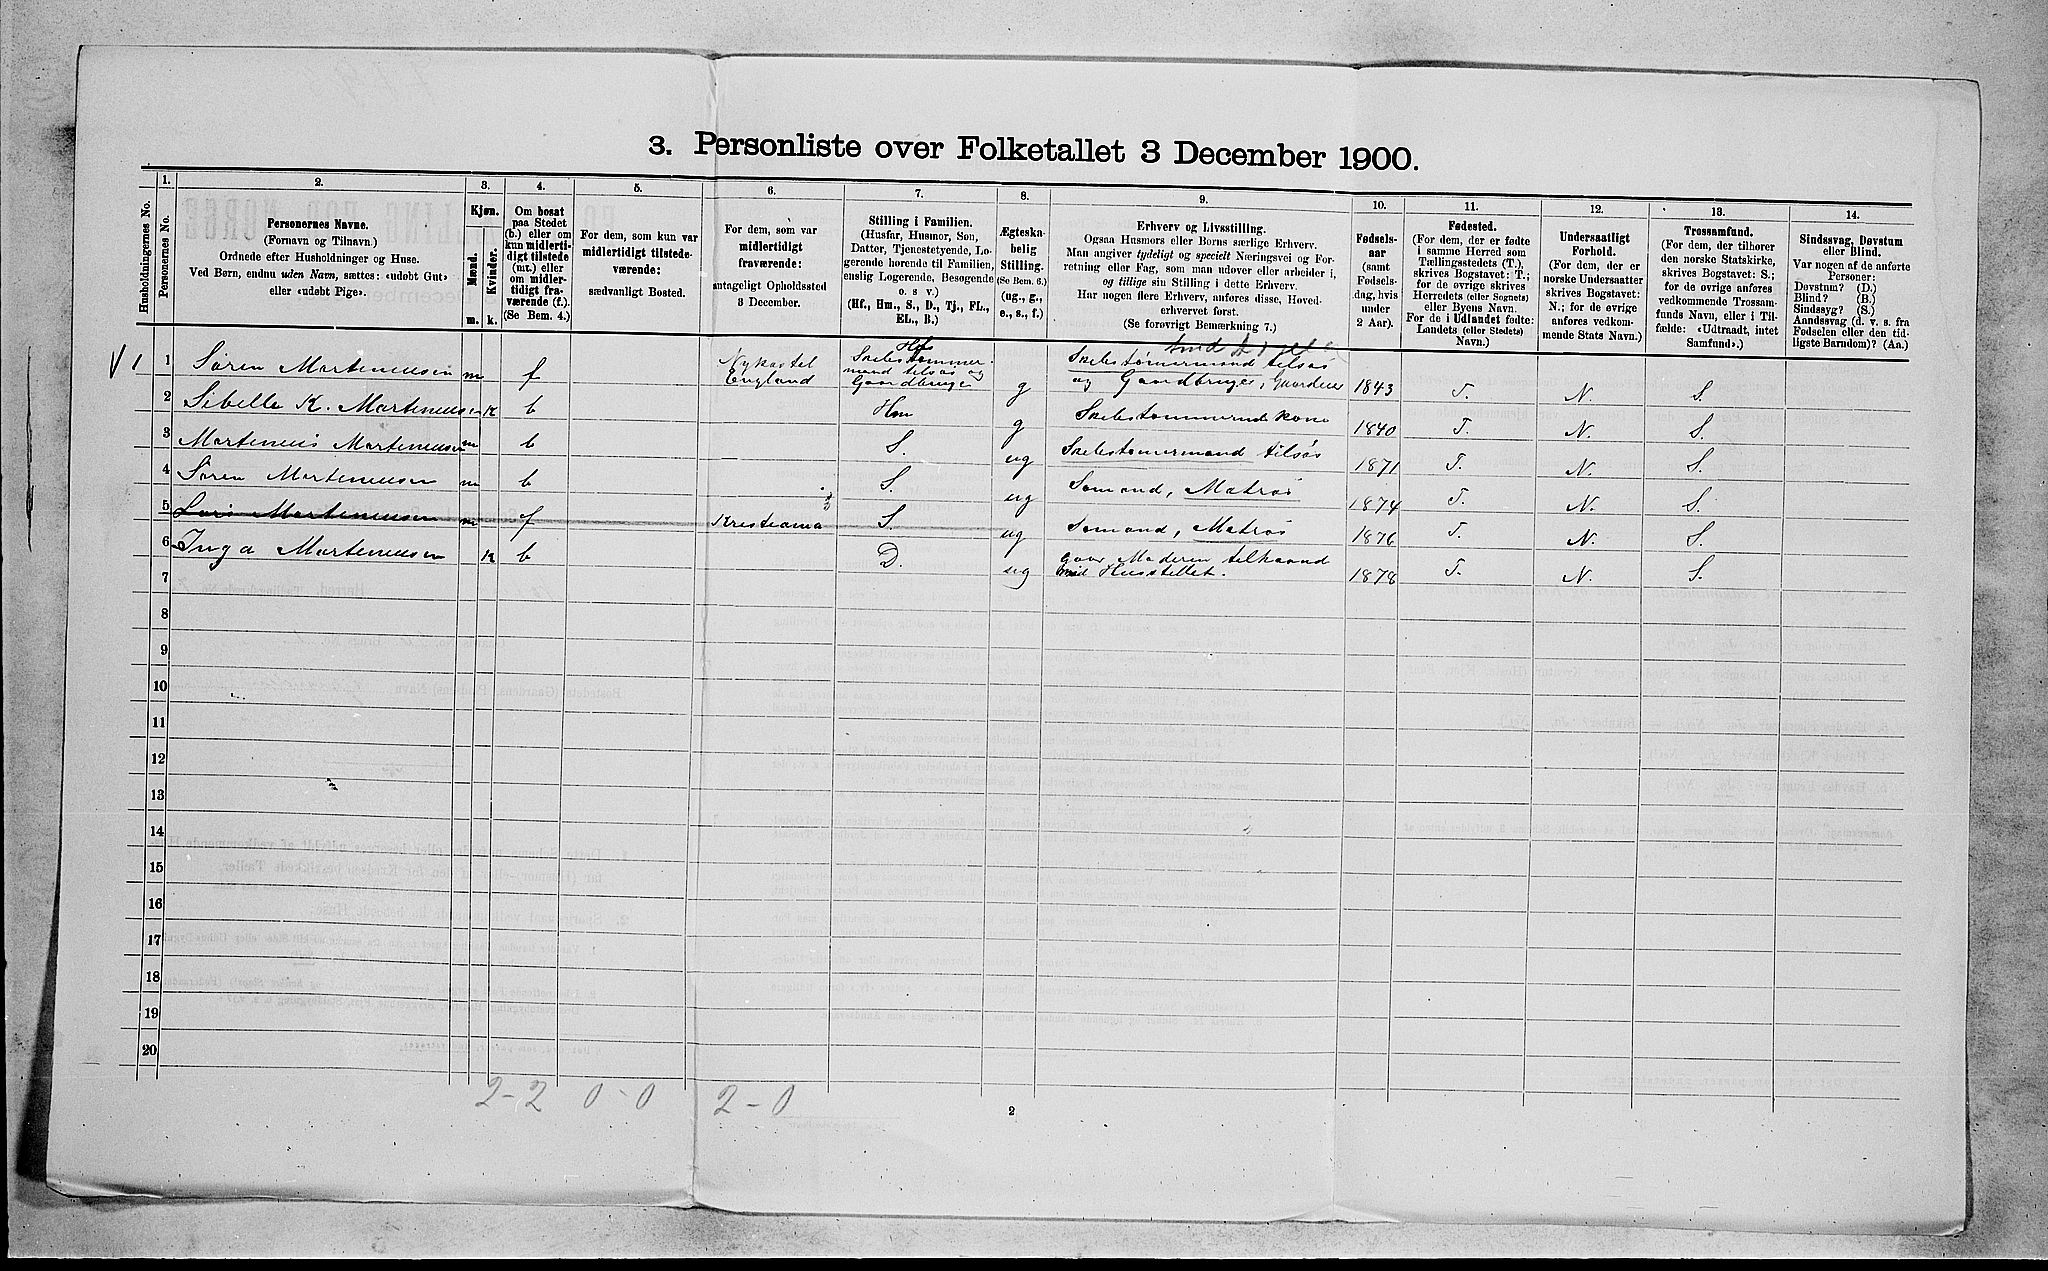 3. Personliste over Folketallet 3 December 1900.
Husholdningernes No.
1. Personernes No.
2. Personernes Navne.
(Fornavn og Tilnavn.)
Ordnede efter Husholdninger og Huse.
Ved Børn, endnu uden Navn, sættes: «udøbt Gut»
eller «udøbt Pige».
3. Kjøn.
Mænd. m.
Kvinder. k.
4. Om bosat
paa Stedet
(b.) eller om
kun midlerti-
digt tilstede
(mt.) eller
om midler-
tidigt fra-
værende (f.).
(Se Bem. 4.)
5. For dem, som kun var
midlertidigt tilstede-
værende:
sædvanligt Bosted.
6. For dem, som var
midlertidigt
fraværende:
antageligt Opholdssted
3 December.
7. Stilling i Familien.
(Husfar, Husmor, Søn,
Datter, Tjenestetyende, Lo-
gerende hørende til Familien,
enslig Logerende, Besøgende
o. s v.)
(Hf., Hm., S., D., Tj., FL.,
EL., B.)
8. Ægteska-
belig
Stilling.
(Se Bem. 6.)
(ug., g.,
e., s., f.)
9. Erhverv og Livsstilling.
Ogsaa Husmors eller Børns særlige Erhverv.
Man angiver tydeligt og specielt Næringsvei og For-
retning eller Fag, som man udøver eller arbeider i,
og tillige sin Stilling i dette Erhverv.
Har nogen flere Erhverv, anføres disse, Hoved-
erhvervet først.
(Se forøvrigt Bemærkning 7.)
10. Fødsels-
aar
(samt
Fødsels-
dag, hvis
under
2 Aar).
11. Fødested.
(For dem, der er fødte
i samme Herred som
Tællingsstedets (T.),
skrives Bogstavet: T.;
for de øvrige skrives
Herredets (eller Sognets)
eller Byens Navn.
For de i Udlandet fødte:
Landets (eller Stedets)
Navn.)
12. Undersaatligt
Forhold.
(For dem, der er
norske Undersaatter
skrives Bogstavet:
N.; for de øvrige
anføres vedkom-
mende Stats Navn.)
13. Trossamfund.
(For dem, der tilhører
den norske Statskirke,
skrives Bogstavet: S.;
for de øvrige anføres
vedkommende Trossam-
funds Navn, eller i Til-
fælde: «Udtraadt, intet
Samfund».)
14. Sindssvag, Døvstum
eller Blind.
Var nogen af de anførte
Personer:
Døvstum? (D.)
Blind? (B.)
Sindssyg? (S.)
Aandssvag (d. v. s. fra
Fødselen eller den tid-
ligste Barndom)? (Aa.)
V 1 1 Søren Marteniusen m f Nykastel England Hf Skibstømmermand tilsøs og Gaardbruger g Skibstømermand tilsøs og Gaardbruger, Gaardeier 1843 T. N. S.
2 Sibelle K. Marteniusen k b Hm g Skibstømmermandskone 1840 T. N. S.
3 Martenius Marteniusen m b S. ug Skibstømermand tilsøs 1871 T. N. S.
4 Søren Marteniusen m b S. ug Sømand, Matros 1874 T. N. S.
5 Lars Marteniusen m f Kristiania S. ug Sømand, Matros 1876 T. N. S.
6 Inga Marteniusen k b D. ug gaar Moderen tilhaand med Husstellet. 1878 T. N. S.
7
8
9
10
11
12
13
14
15
16
17
18
19
20
2-2 0-0 2-0
2